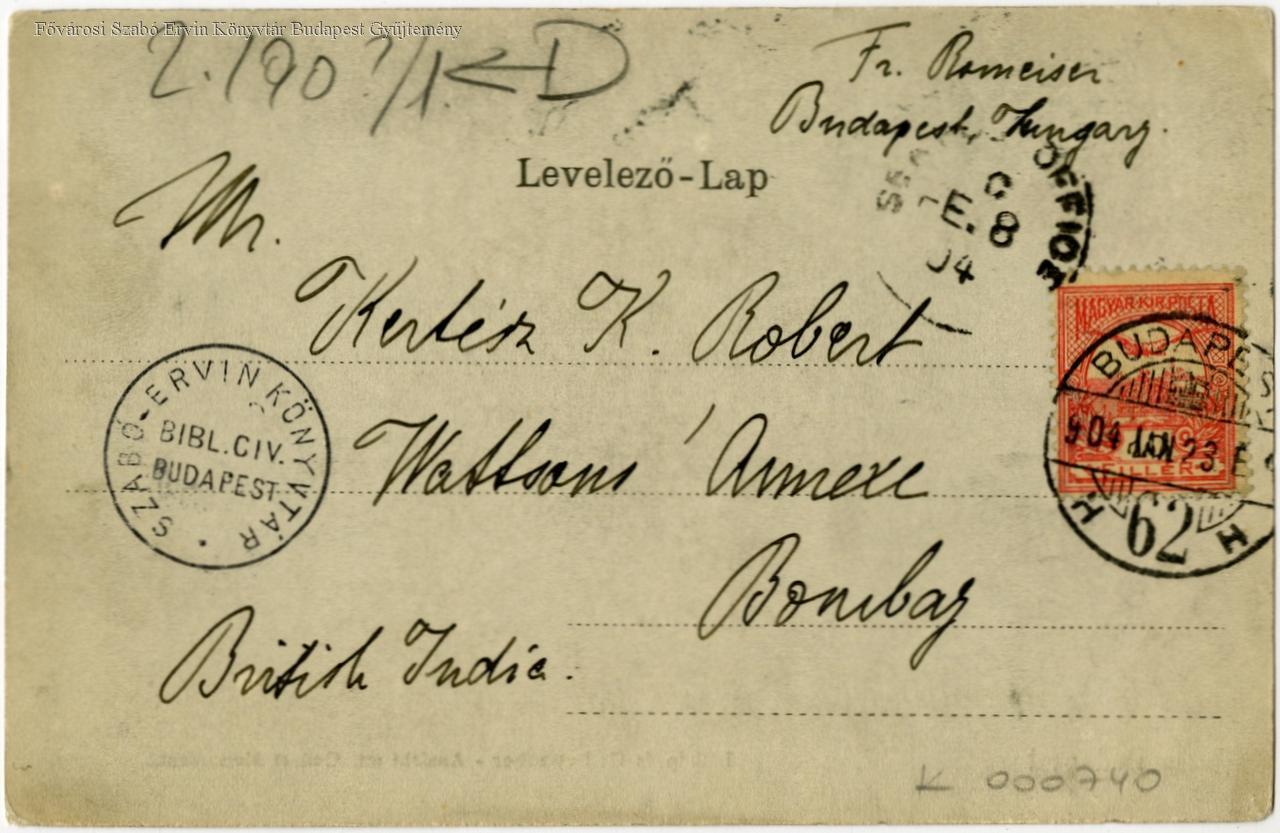 Fővárosi Szabó Ervin Könyvtár Budapest Gyűjtemény
Fr. Romeiser
Budapest, Hungary.
Levelező-Lap
OFFICE
C
E. 8
04
Mr.
Kertész K. Robert
Wattsons' Annexe
Bombay
British India.
MAGYAR KIR. POSTA
FILLÉR
BUDAPEST
904 JAN 23
62
H H
SZABÓ-ERVIN KÖNYVTÁR
BIBL. CIV.
BUDAPEST
K 000740